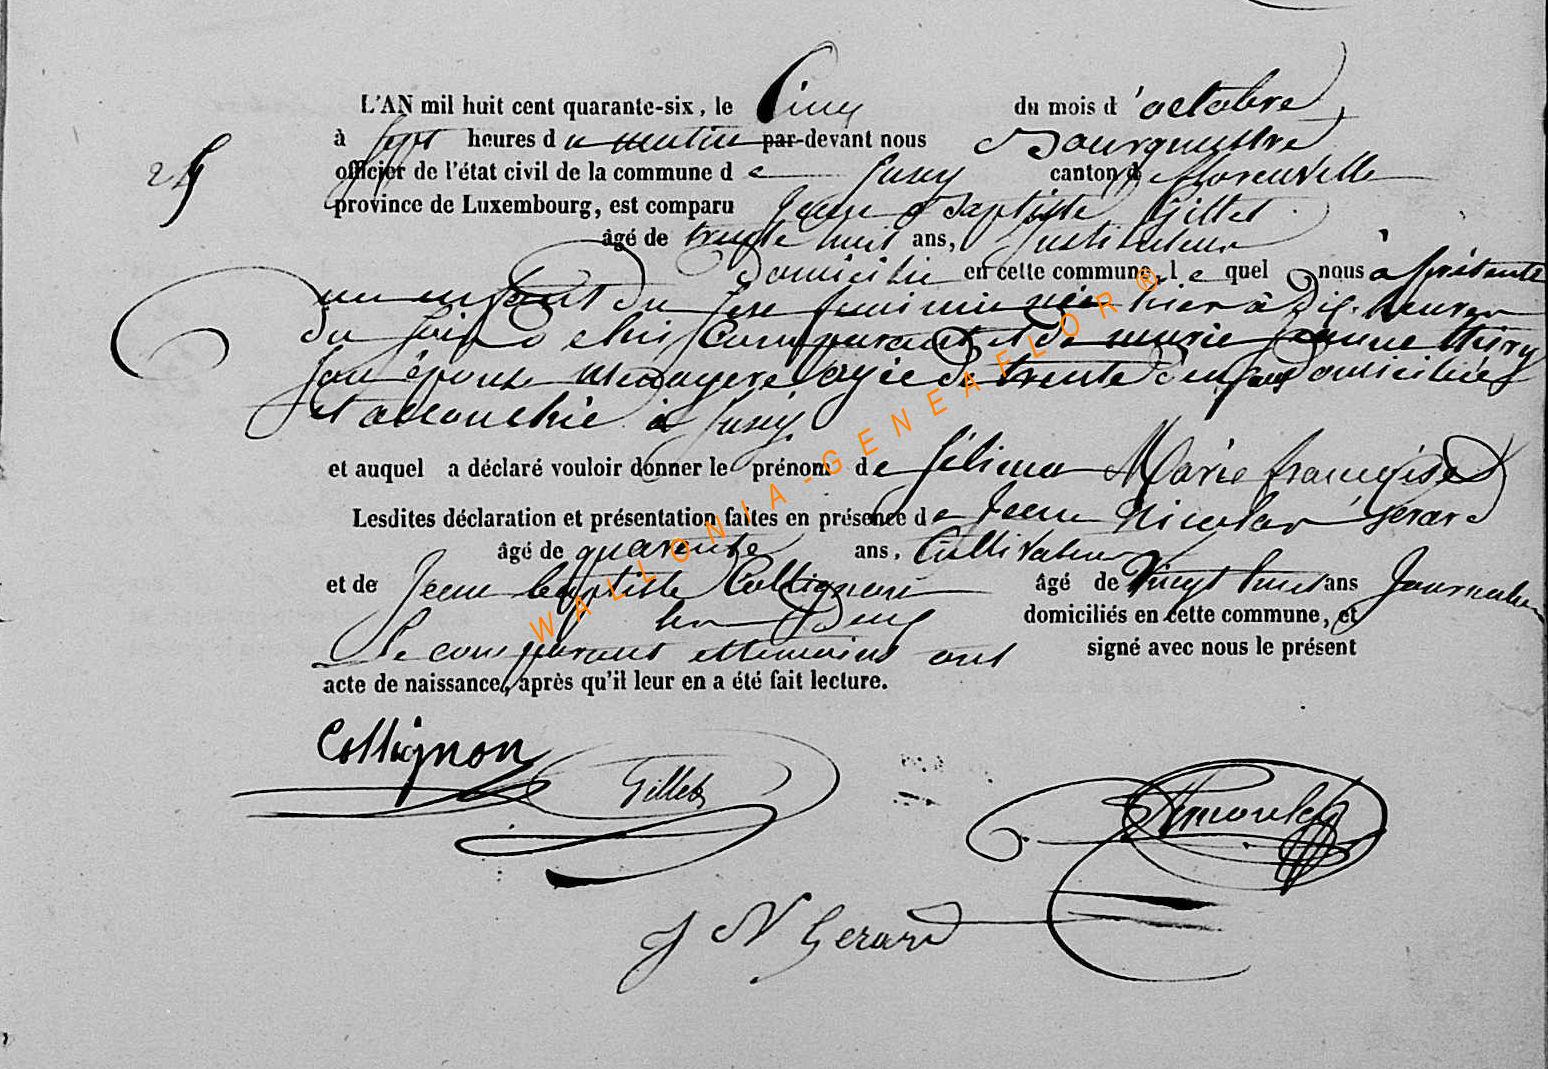 L'AN mil huit cent quarante-six, le Cinq du mois d'octobre
à sept heures du matin par-devant nous Bourgmestre
25
officier de l'état civil de la commune de Suxy canton de florenville
province de Luxembourg, est comparu Jean Baptiste Gillet
âgé de trente huit ans, Instituteur
domicilié en cette commune, lequel nous à présenté
un enfant du sexe feminin née hier à dix heures
du soir de lui Comparant et de marie jeanne thiry
son épouse menagere agée de trente deux ans domiciliée
et accouchée à Suxy
et auquel a déclaré vouloir donner le prénom de félicina Marie françoise
Lesdites déclaration et présentation faites en présence de Jean Nicolas Gerard
âgé de quarente ans, Cultivateur
et de Jean baptiste Collignon âgé de Vingt huit ans Journalier
les Deux domiciliés en cette commune, et
Le comparant et temoins ont signé avec nous le présent
acte de naissance, après qu'il leur en a été fait lecture.
Collignon
Gillet
J N Gerard
WALLONIA-GENEAFLOR®